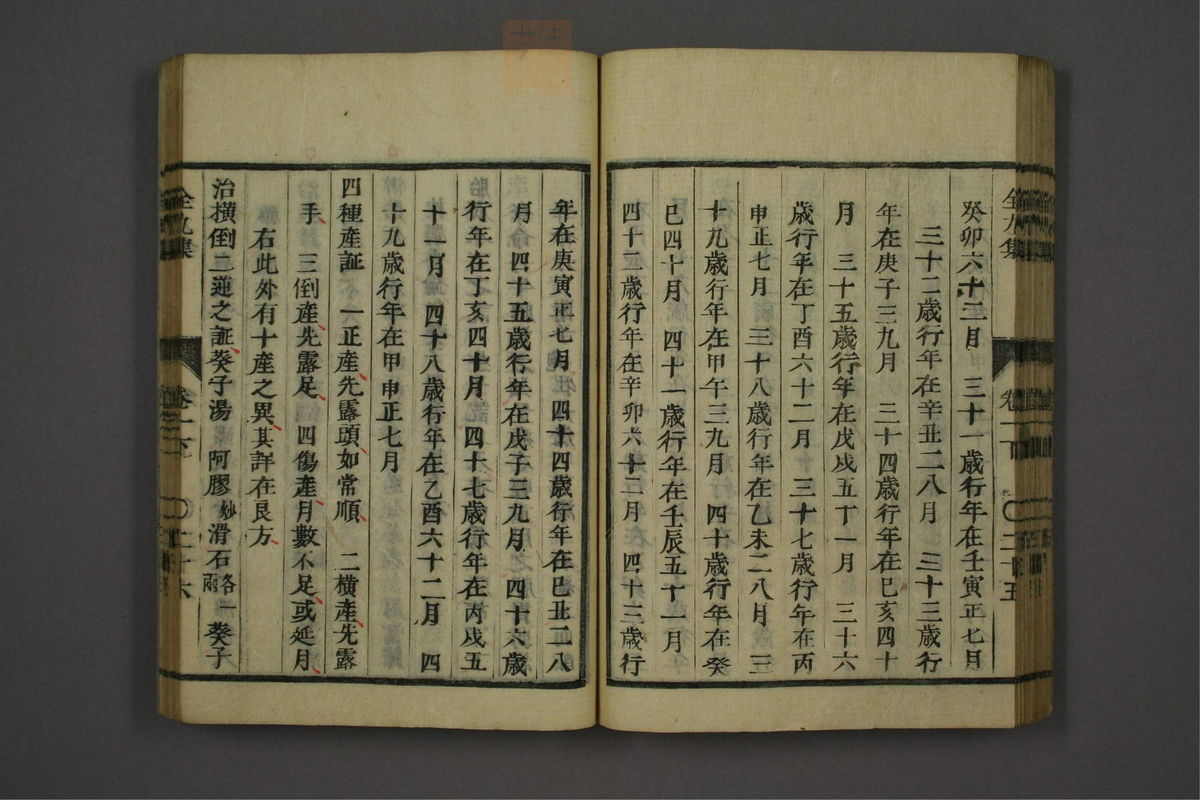 癸卯六十二月　三十一歳行年在壬寅正七月
三十二歳行年在辛丑二八月　三十三歳行
年在庚子三九月　三十四歳行年在己亥四十
月　三十五歳行年在戊戌五十一月　三十六
歳行年在丁酉六十二月　三十七歳行年在丙
申正七月　三十八歳行年在乙未二八月　三
十九歳行年在甲午三九月　四十歳行年在癸
巳四十月　四十一歳行年在壬辰五十一月
四十二歳行年在辛卯六十二月　四十三歳行
全九集　卷一下　二十五
年在庚寅正七月　四十四歳行年在己丑二八
月　四十五歳行年在戊子三九月　四十六歳
行年在丁亥四十月　四十七歳行年在丙戌五
十一月　四十八歳行年在乙酉六十二月　四
十九歳行年在甲申正七月
四種産証　一正産先露頭如常順　二横産先露
手　三倒産先露足　四傷産月數不足或延月
右此外有十産之異其詳在良方
治横倒二逆之証葵子湯　阿膠炒　滑石各一兩　葵子
全九集　卷一下　二十六